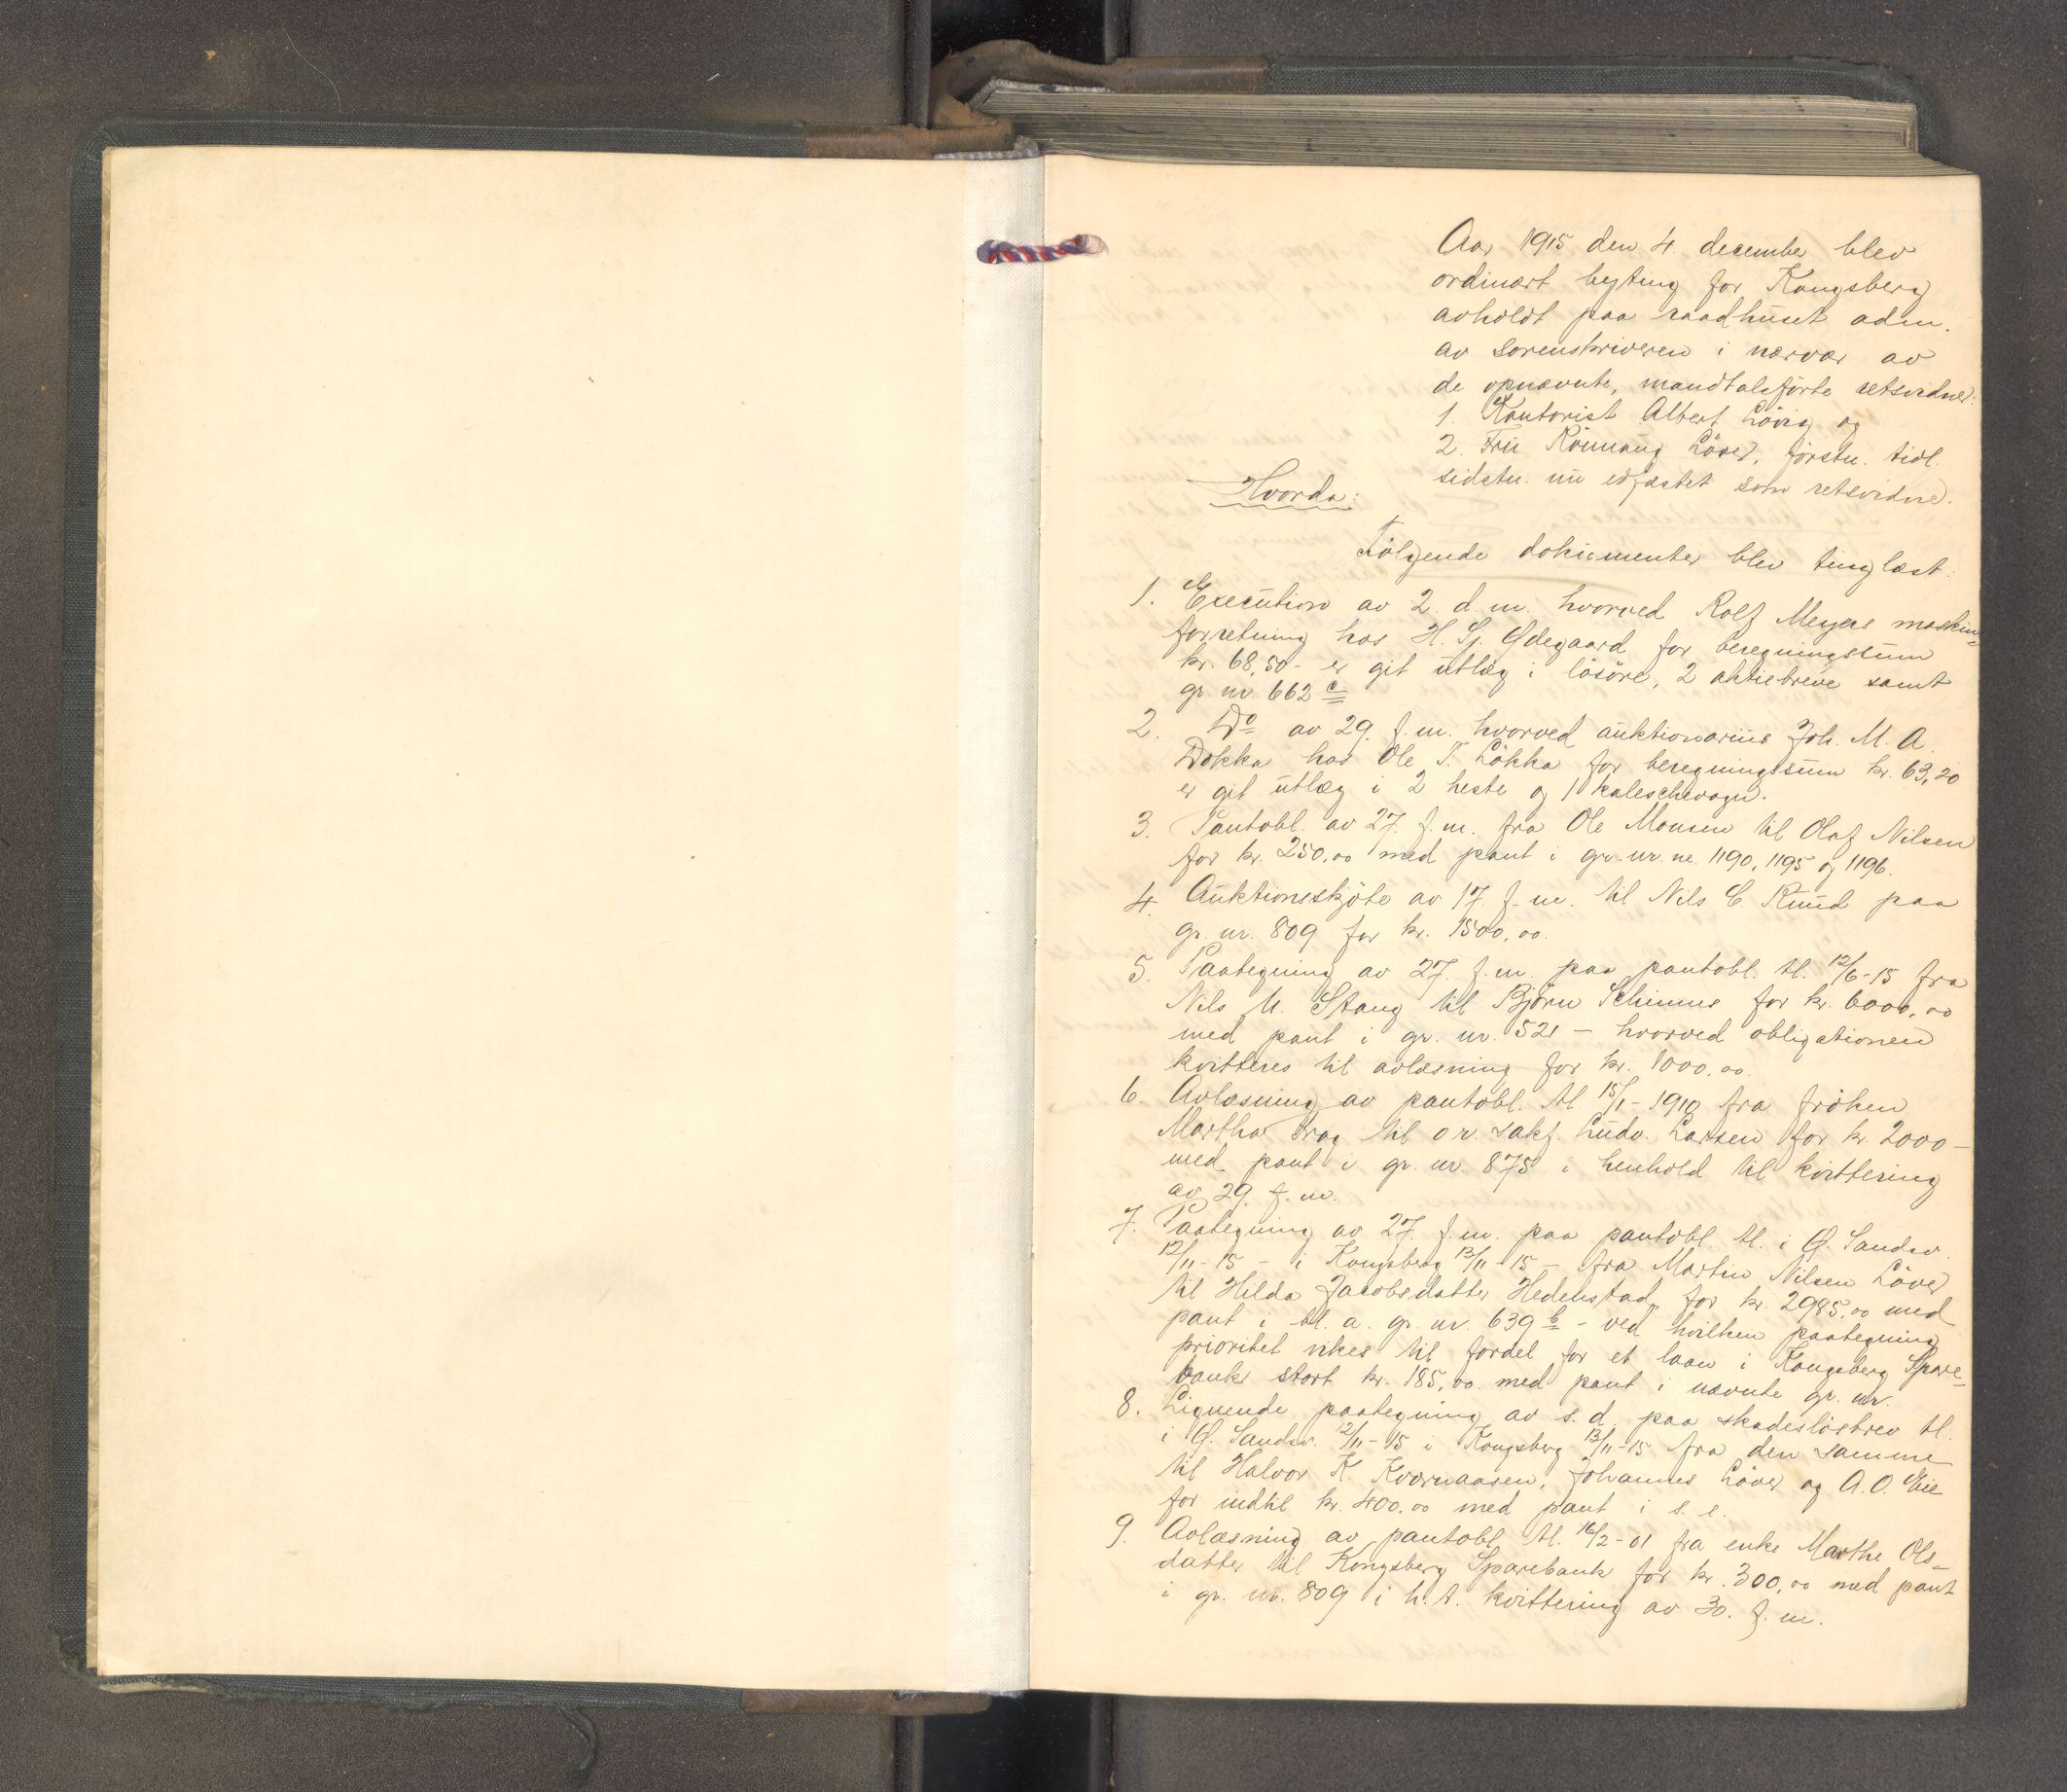 Aar 1915 den 4. december blev
ordinært byting for Kongsberg
avholdt paa raadhuset adm.
av sorenskriveren i nærvær av
de opnævnte, mandtalsførte retsvidner:
1. Kontorist Albert Løvig og
2. Fru Rønnaug Løver, førstn. tidl.
sidstn. nu edfæstet som retsvidne.
Hvorda:
Følgende dokumenter blev tinglæst:
1. Execution av 2. d. m. hvorved Rolf Meyers maskin-
forretning hos H. Sj. Ødegaard for beregningssum
kr. 68,50 - er git utlæg i løsøre, 2 aktiebreve samt
gr. nr 662 c
2. Do av 29. f. m. hvorved auktionarius Joh. M. A.
Dokka hos Ole T. Løkka for beregningssum kr. 63,20
er git utlæg i 2 heste og 1 kaleschevogn.
3. Pantobl. av 27. f. m. fra Ole Monsen til Olaf Nilsen
for kr. 250,00 med pant i gr. nr. ne 1190, 1195 og 1196.
4. Auktionsskjøte av 17. f. m. til Nils C. Ruud paa
gr. nr. 809 for kr. 1500,00.
5. Paategning av 27. f. m. paa pantobl. tl. 12/6-15 fra
Nils M. Stang til Bjørn Schinnes for kr. 6000,00
med pant i gr. nr. 521 - hvorved obligationen
kvitteres til avlæsning for kr. 1000,00.
6. Avlæsning av pantobl. tl 15/1-1910 fra frøken
Martha Krag til o.r. sakf. Ludv. Larsen for kr. 2000 -
med pant i gr. nr. 875 i henhold til kvittering
av 29. f. m.
7. Paategning av 27. f. m. paa pantobl. tl. i Ø. Sandsv.
12/11-15 - i Kongsberg 13/11-15 - fra Martin Nilsen Løver
til Hilda Jacobsdatter Hedenstad for kr. 2985,00 med
pant i bl. a. gr. nr. 639 b - ved hvilken paategning
prioritet vikes til fordel for et laan i Kongsberg Spare-
bank stort kr. 185,00 med pant i nævnte gr. nr.
8. Lignende paategning av s. d. paa skadesløsbrev tl.
i Ø. Sandsv. 12/11-15 i Kongsberg 13/11-15 fra den samme
til Halvor K. Kværnaasen, Johannes Løver og A. O. Eie
for indtil kr. 400,00 med pant i s. e.
9. Avlæsning av pantobl. tl. 16/2-01 fra enke Marthe Ols-
datter til Kongsberg Sparebank for kr. 300,00 med pant
i gr. nr. 809 i h. t. kvittering av 30. f. m.